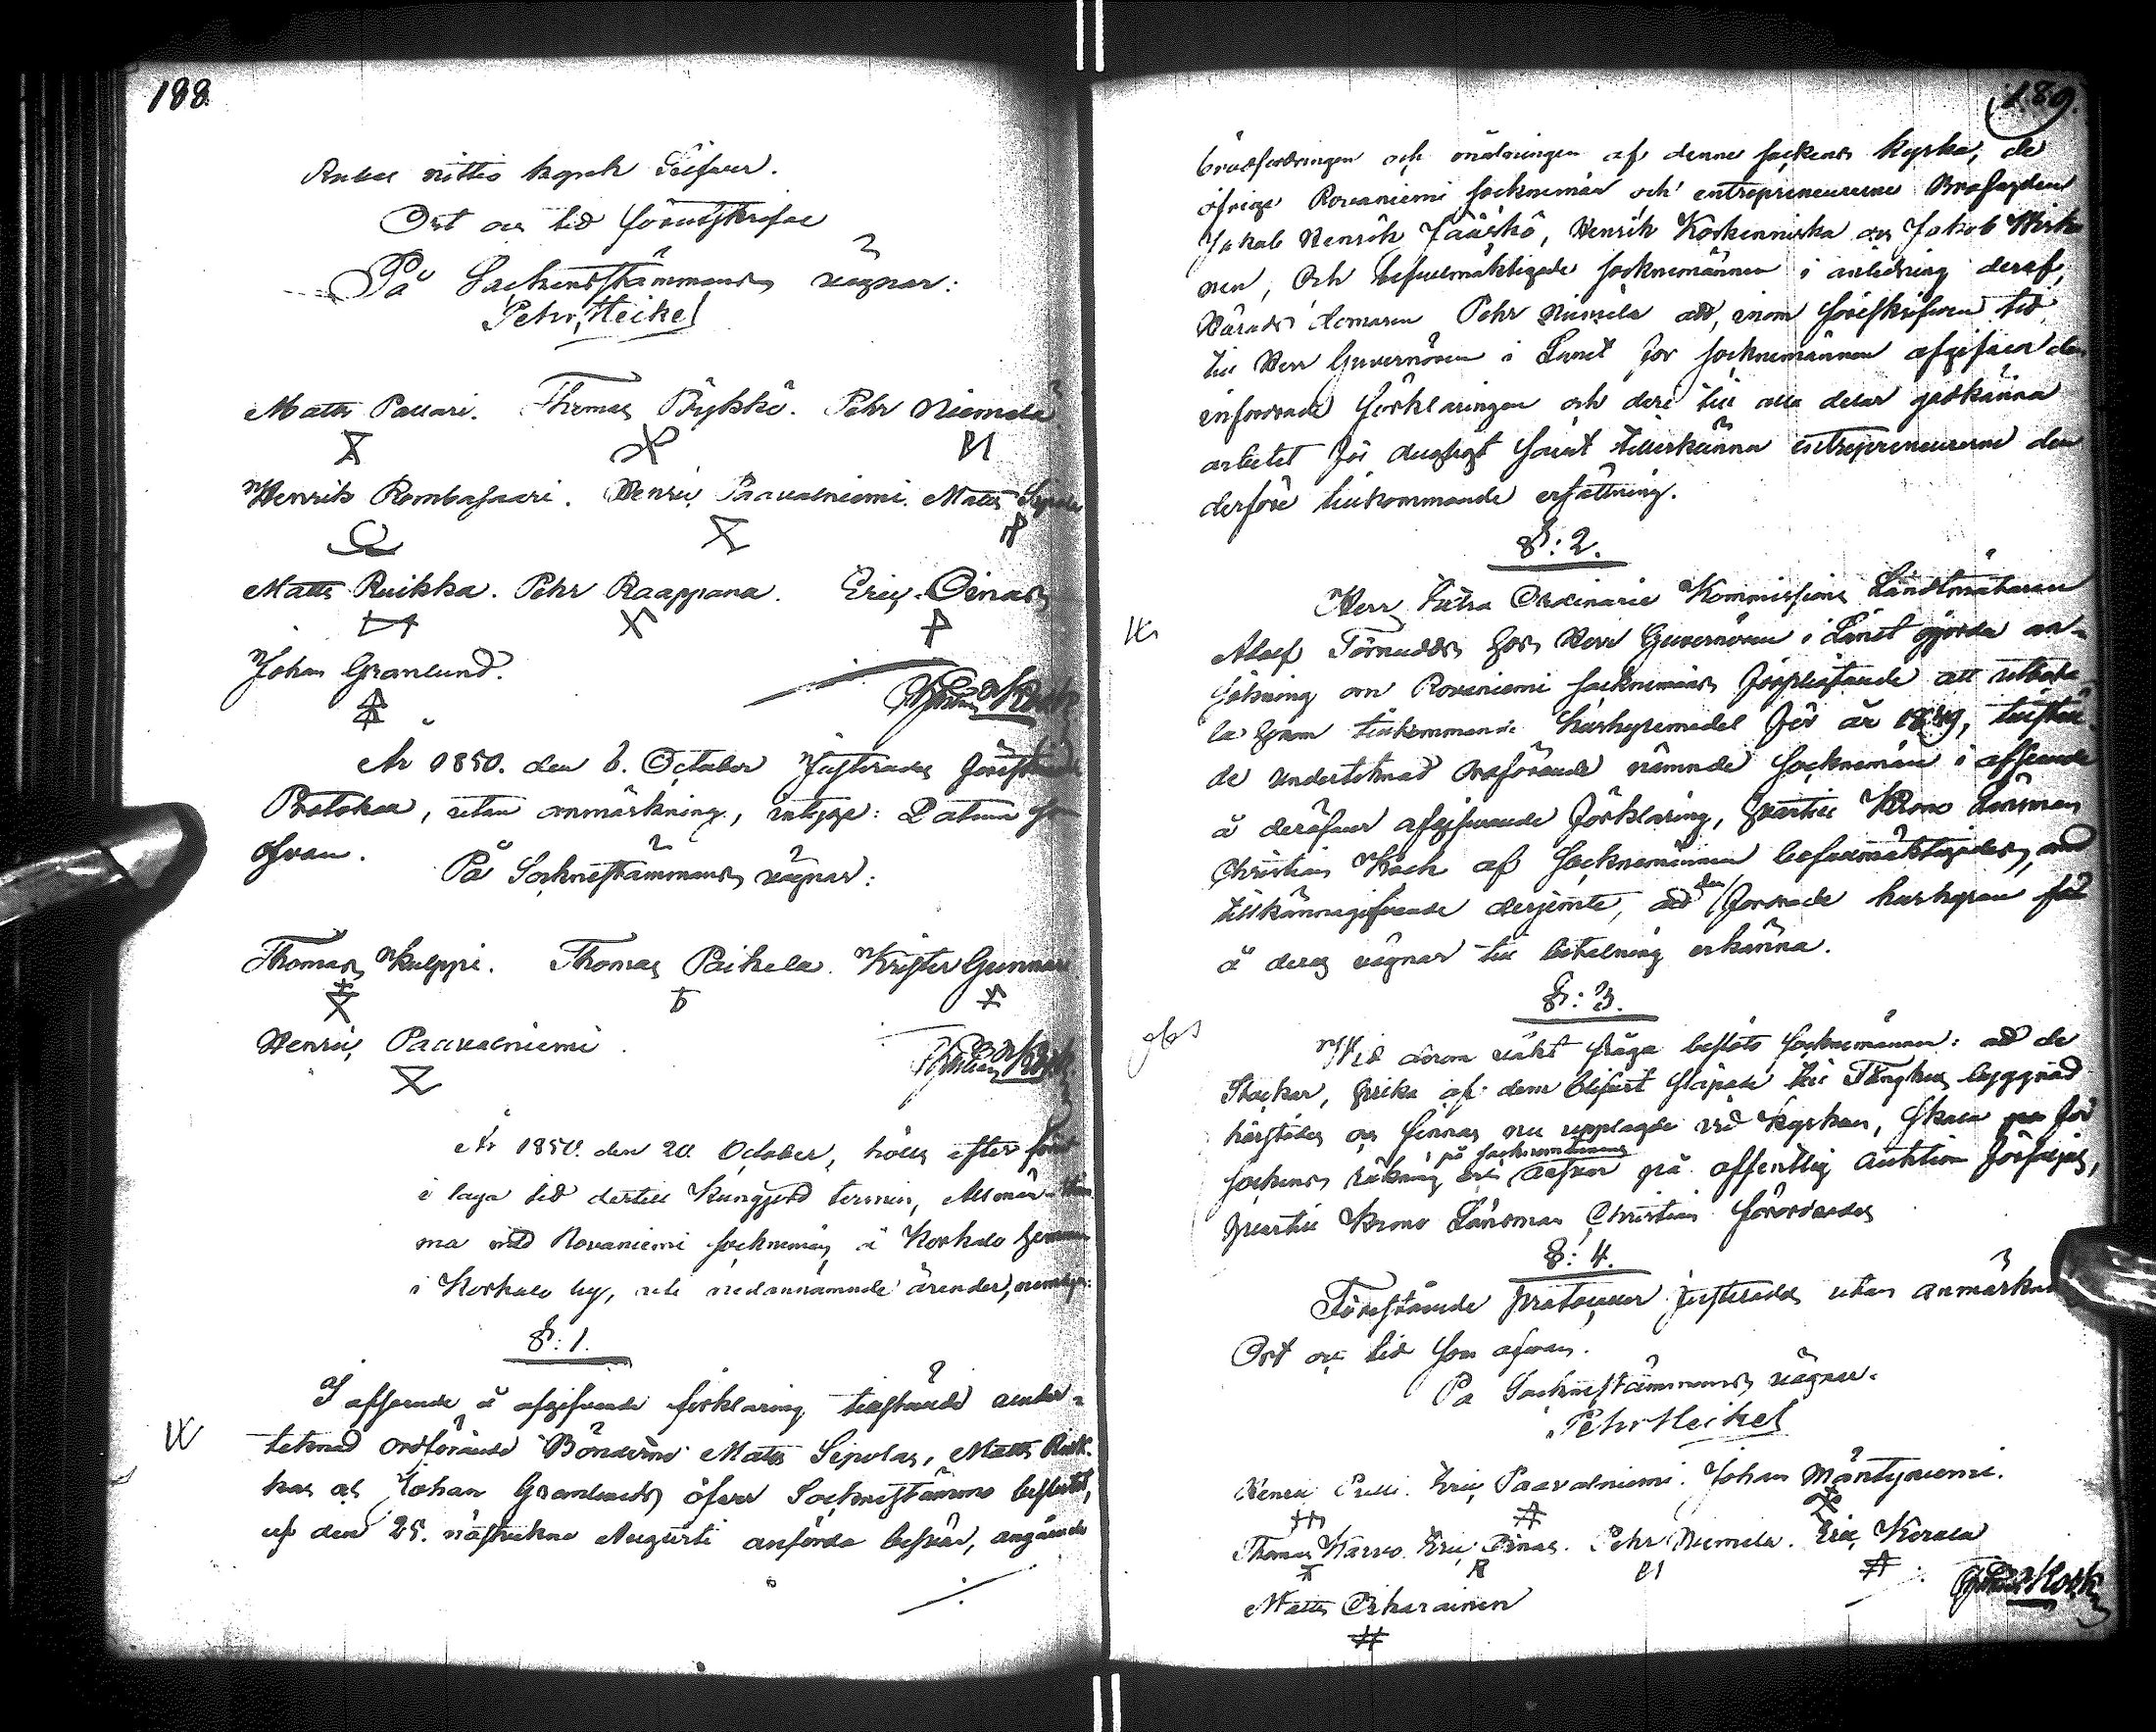 188
Rubel nittio kopek Silfver.
Ort och tid förutskrefne
På Sockenstämmans vägnar:
Pehr Heikel
Matts Pallari. Thomas Pöykkö. Pehr Niemelä.
Henrik Rombasaari. Henric Paavalniemi. Matts Sipola
Matts Ruikka. Pehr Raappana. Eric Oinas
Johan Granlund.
År 1850. den 6. October Justerades förestående
Protokoll, utan anmärkning, intyga: Datum som
ofvan.
På Socknestämmans vägnar:
Thomas Kulppi. Thomas Paikela. Krister Gunnari
Henric Paavalniemi.
År 1850. den 20. October, hölls efter förut
i laga tid dertill kungjord termin, Allmän stäm
ma med Rovaniemi socknemän å Korkalo hemman
i Korkalo by, uti nedannämnde ärender, nemligen:
§: 1.
I afseende å afgifvande förklaring tillstände under-
tecknad ordförande Bönderne Matts Sipolas, Matts Ruik-
kas och Johan Granlunds öfver Socknestämmo beslutet,
af den 25. nästvekne Augusti anförda besvär, angående
189.
brädfodringen och målningen af denne sockens kyrka, de
öfrige Rovaniemi socknemän och entrepreneurerne
Jakob Henrik Jääskö, Henrik Koskenniska och Jakob
nen, Och befullmäktigade socknemännen i anledning deraf,
Härads domaren Pehr Niemelä att, inom föreskrifven tid
till Herr Guvernören i Länet för socknemännen afgifva den
infordrade förklaringen och deri till alla delar godkänna
arbetet för dugligt samt tillerkänna entrepreneurerne den
derföre tillkommande ersättning.
§: 2.
Herr Extra Ordinarie Kommissions Landtmätaren
Adolf Törnudds hos Herr Guvernören i Länet gjorda an-
sökning om Rovaniemi socknemäns förpligtande att utbeta-
la honom tillkommande hushyremedel för år 1849, tillstäl-
de undertecknad ordförande nämnde socknemän i afseende
å deröfver afgifvande förklaring, hvartill Krono Länsman
Christian Koch af socknemännen befullmäktigades, med
tillkännagifvande derjemte, att den fordrade hushyran
å deras vägnar till betalning erkänna.
§: 3.
obs
Wid derom väckt fråga beslöto socknemännen: att de
Stockar, hvilka af dem blifvit släpade till Fånghus byggnad
härstädes och finnas nu upplagde vid kyrkan, skall för
sockens räkning på socknestämma på offentlig auktion försäljas,
hvartill Krono Länsman Christian förordnades
§: 4.
Förestående protocoller justerades utan anmärkning
Ort och tid som ofvan.
På Socknestämmans vägnar.
Pehr Heikel
Henric Pulli. Eric Paavalniemi. Johan Mäntyniemi.
Thomas Karvo. Eric Oinas. Pehr Niemelä. Eric Korala
Matts Oikarainen